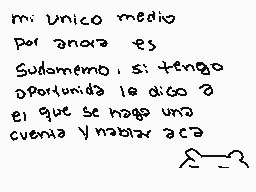 mi unico medio
por anora es
Sudomemo, si tengo
oportunida le digo a
el que se haga una
cuenta y hablar aca